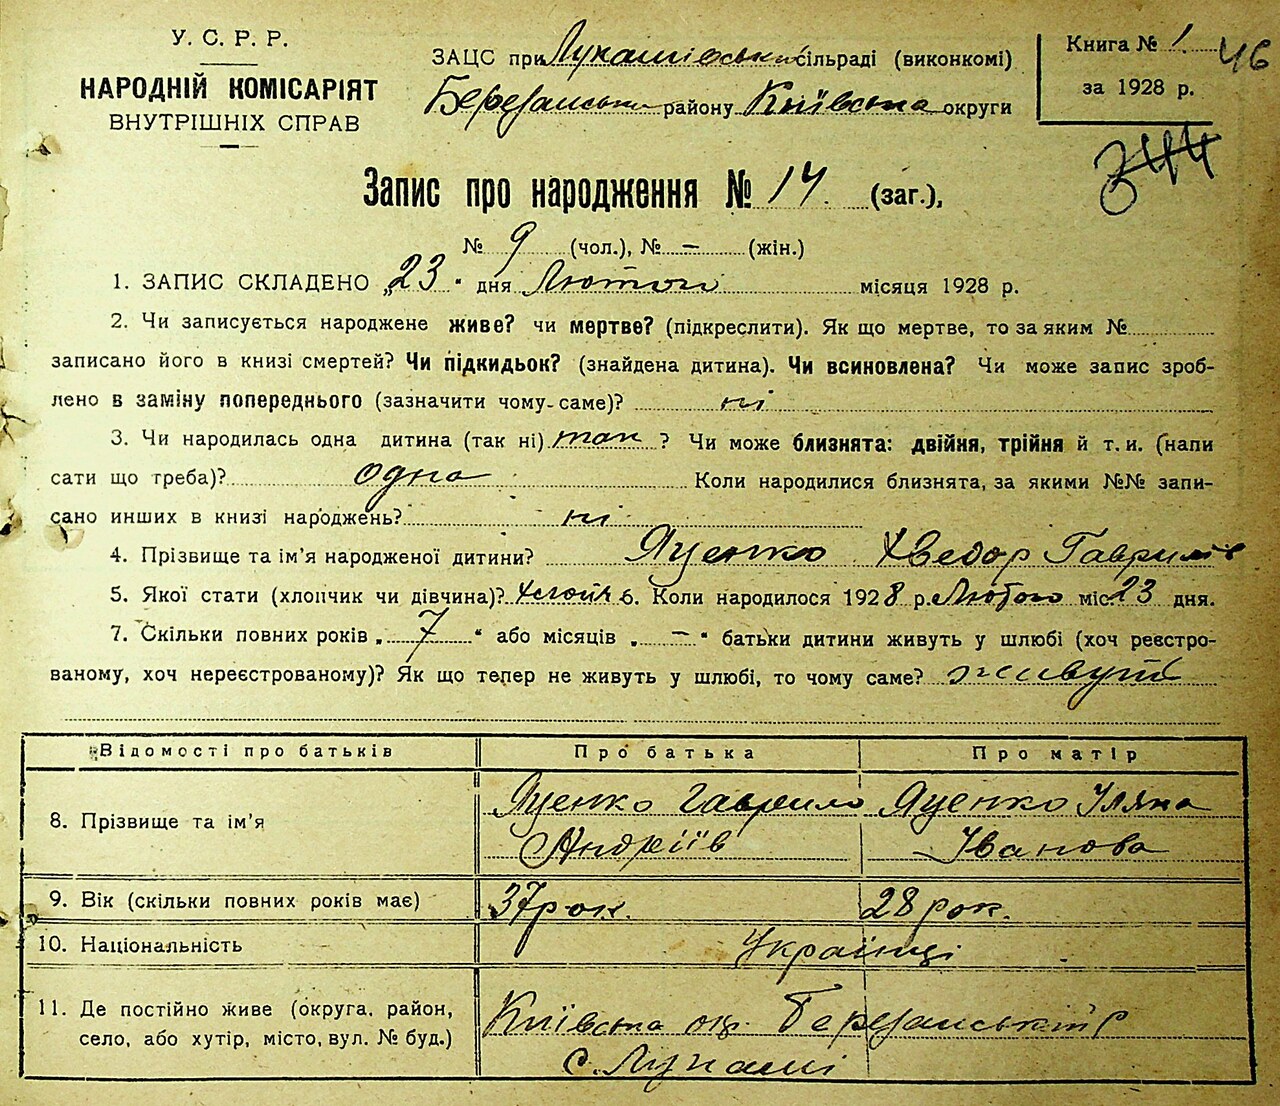 У. С. Р. Р.
НАРОДНІЙ КОМІСАРІЯТ
ВНУТРІШНІХ СПРАВ
ЗАЦС при Лукашівській сільраді (виконкомі)
Березанського району Київська округи
Книга № 1. 46
за 1928 р.
344
Запис про народження № 14. (заг.),
№ 9 (чол.), № – (жін.)
1. ЗАПИС СКЛАДЕНО „23“ дня Лютого місяця 1928 р.
2. Чи записується народжене живе? чи мертве? (підкреслити). Як що мертве, то за яким №
записано його в книзі смертей? Чи підкидьок? (знайдена дитина). Чи всиновлена? Чи може запис зроб-
лено в заміну попереднього (зазначити чому-саме)? ні
3. Чи народилась одна дитина (так ні) так ? Чи може близнята: двійня, трійня й т. и. (напи
сати що треба)? одна Коли народилися близнята, за якими №№ запи-
сано инших в книзі народжень? ні
4. Прізвище та ім'я народженої дитини? Яценко Хведор Гаврилів
5. Якої стати (хлопчик чи дівчина)? 6. Коли народилося 1928 р. Лютого міс. 23 дня.
7. Скільки повних років „ 7 “ або місяців „ – “ батьки дитини живуть у шлюбі (хоч реєстро-
ваному, хоч нереєстрованому)? Як що тепер не живуть у шлюбі, то чому саме? живуть
Відомості про батьків Про батька Про матір
8. Прізвище та ім'я Яценко Гаврило Андріїв Яценко Уляна Іванова
9. Вік (скільки повних років має) 37 рок. 28 рок.
10. Національність Українці
11. Де постійно живе (округа, район, Київська окр. Березанський р
село, або хутір, місто, вул. № буд.) с. Лукаші